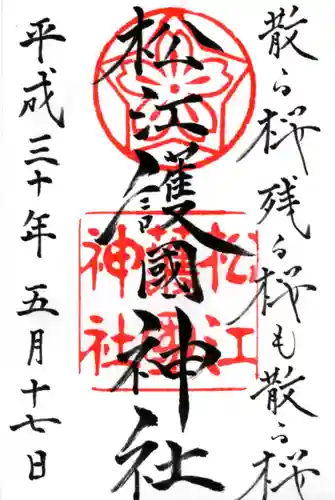 散る桜残る桜も散る桜
松江護國神社
平成三十年五月十七日
松江
護國
神社